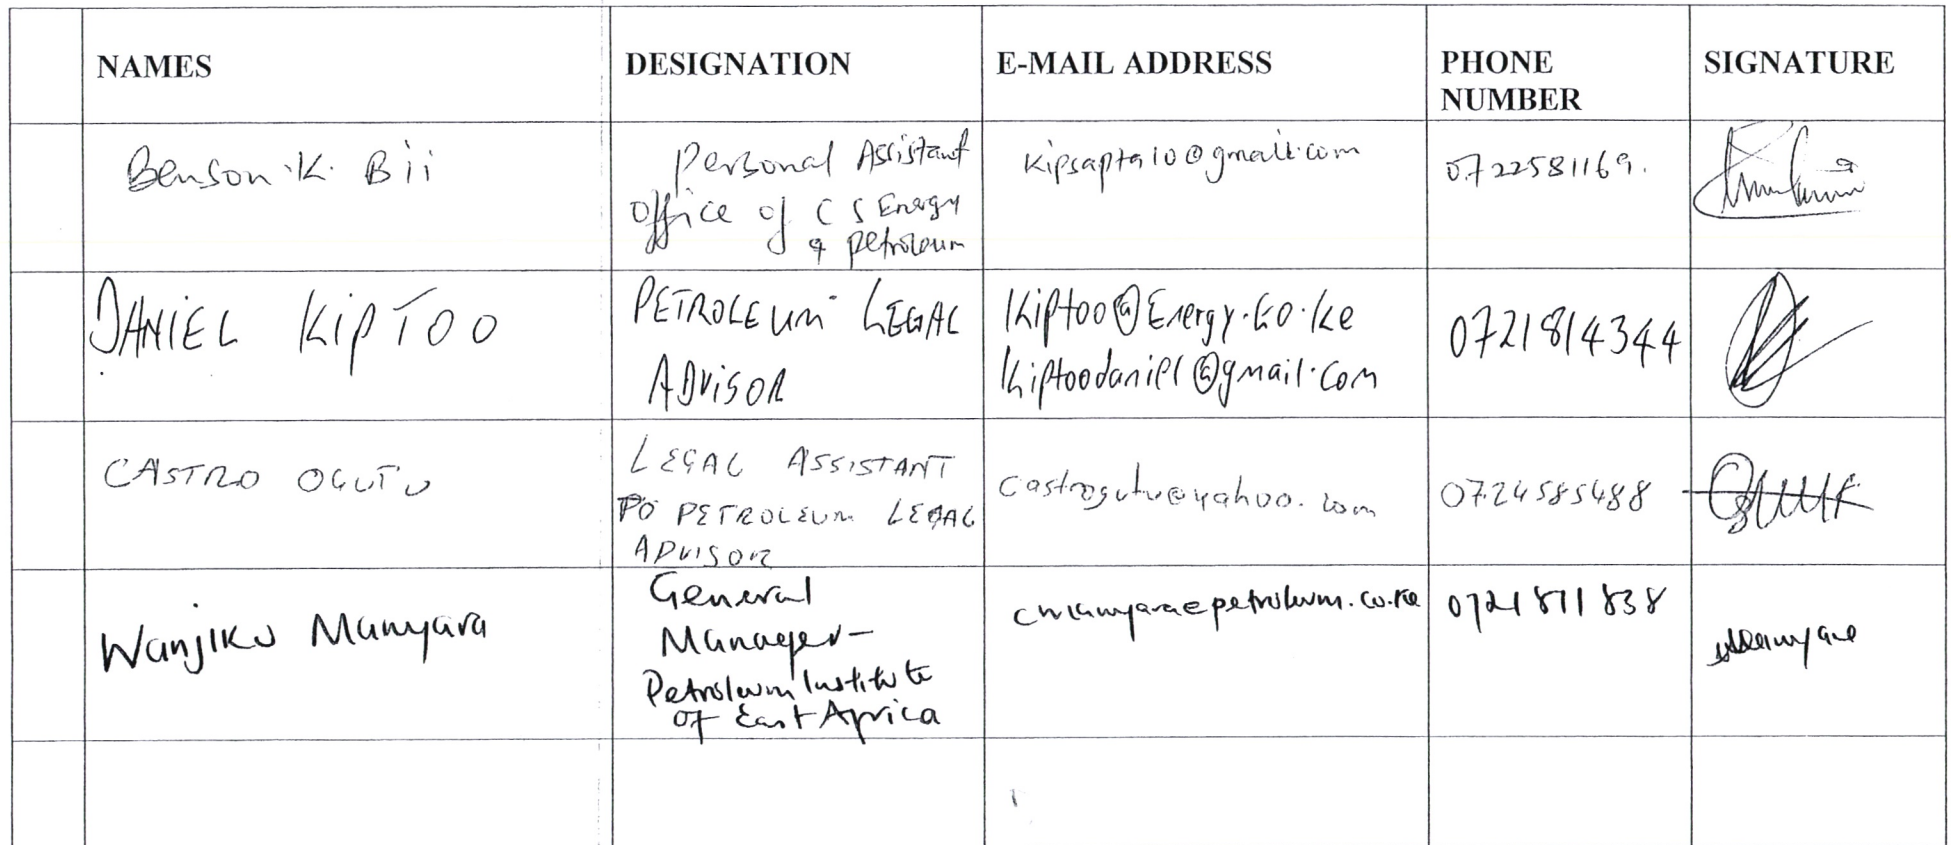 NAMES
DESIGNATION
E-MAIL ADDRESS
PHONE
NUMBER
SIGNATURE
Benson .K. Bii
Personal Assistant
Office of CS Energy
& petroleum
0722581169.
DANIEL KIPTOO
PETROLEUM LEGAL
ADVISOR
Kiptoo@Energy.Go.ke
Kiptoodaniel@gmail.com
0721814344
CASTRO OGUTU
LEGAL ASSISTANT
TO PETROLEUM LEGAL
ADVISOR
castrogutu@yahoo.com
0724585488
Wanjiku Manyara
General
Manager-
Petroleum Institute
of East Africa
0721 811 838